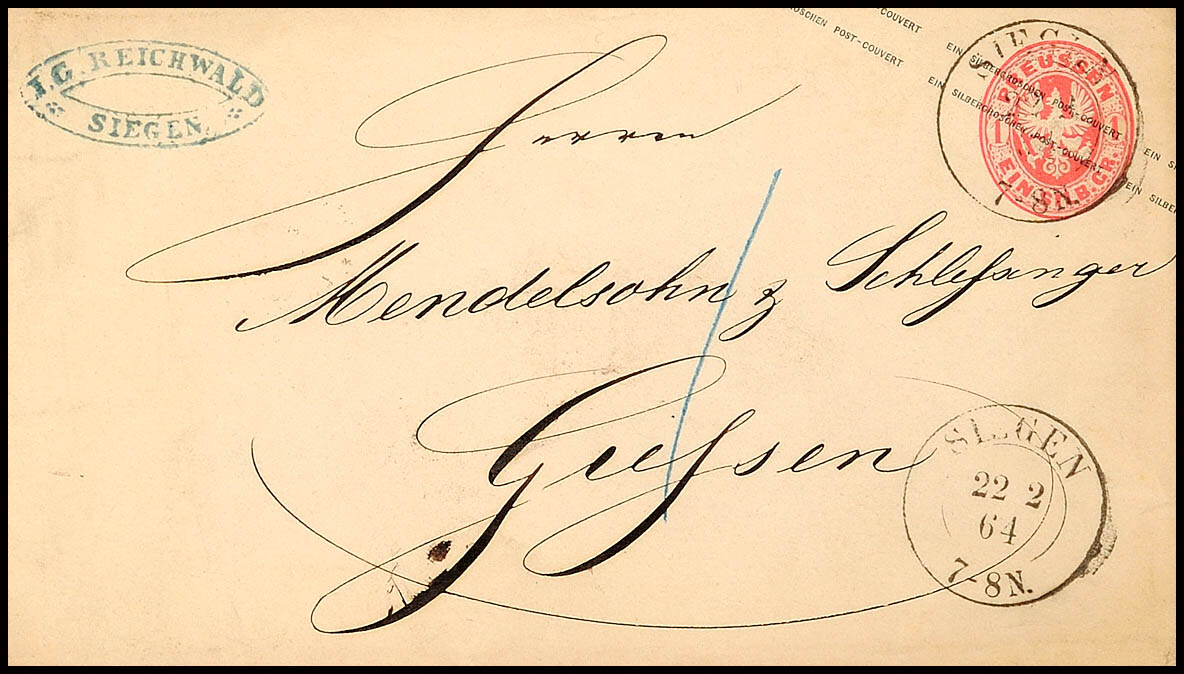 J. G. REICHWALD
SIEGEN.
EIN SILBERGROSCHEN POST-COUVERT EIN SILBERGROSCHEN POST-COUVERT EIN
GROSCHEN POST-COUVERT EIN SILBERGROSCHEN POST-COUVERT EIN SILBERG
SIEGEN
7-8N.
PREUSSEN
1 1
EIN SILB. GR.
Herrn
Mendelsohn & Schleſsinger
Gieſsen
SIEGEN
22 2
64
7-8N.